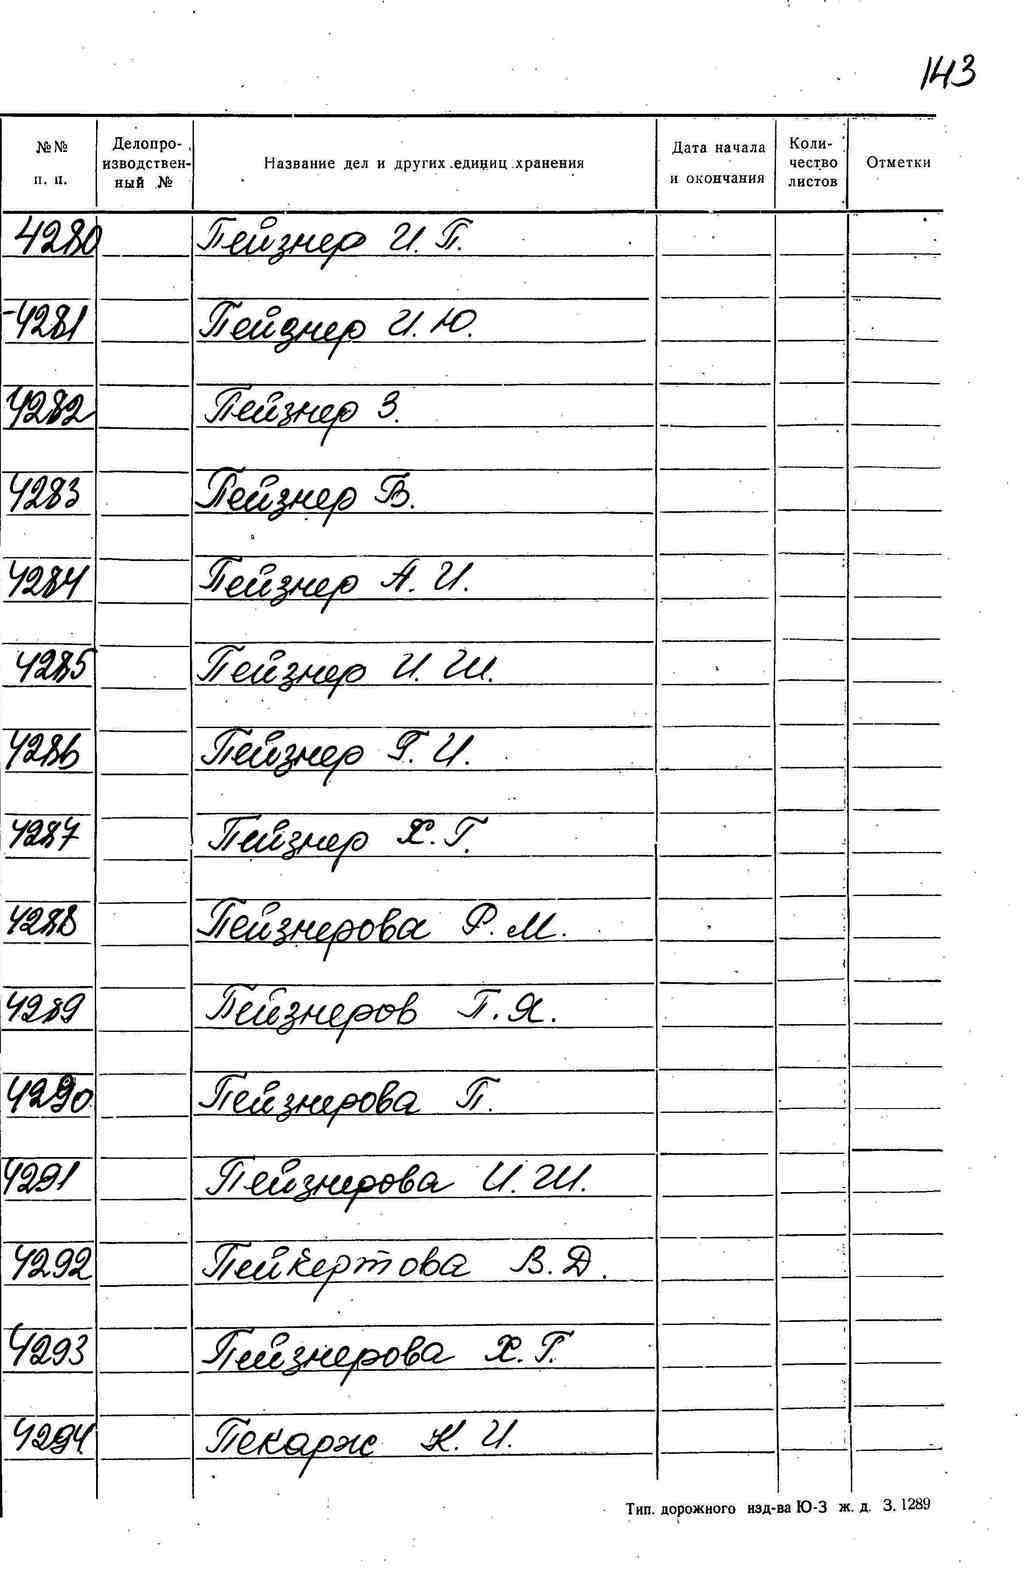 143
№№ п. п. Делопроизводственный № Название дел и других единиц хранения Дата начала и окончания Количество листов Отметки
4280 Пейзнер И. П.
4281 Пейднер И. Ю.
4282 Пейзнер З.
4283 Пейзнер В.
4284 Пейзнер А. И.
4285 Пейзнер И. Ш.
4286 Пейзнер Г. И.
4287 Пейзнер Х. Г.
4288 Пейзнерова Р. М.
4289 Пейзнеров П. Я.
4290 Пейзнерова П.
4291 Пейзнерова И. Ш.
4292 Пейкертова В. Д.
4293 Пейзнерова Х. Г.
4294 Пекарж К. И.
Тип. дорожного изд-ва Ю-З ж. д. З. 1289